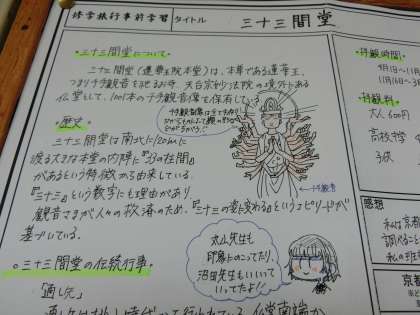 修学旅行事前学習 タイトル 三十三間堂
・三十三間堂について・
三十三間堂(蓮華王院本堂)は、本尊である蓮華王、
つまり千手観音を祀るお寺、天台宗妙法院の境外である
仏堂として、1001本の千手観音像を保有している
千手観音像は全て
・歴史・
三十三間堂は南北に120mに
渡る大きな本堂の内陣に『33の柱間』
があるという特徴から由来している。
『三十三』という数字にも理由があり
観音さまが人々の救済のため、『三十三の姿に変わる』というエピソードが
基づいている。
千手観音
丸山先生も
印象にのこってたり、
沼田先生もいいって
いってたよ!!
・三十三間堂の伝統行事・
「通し矢」
・拝観時間・
4月1日〜11月
11月16日〜3月
・拝観料・
大人600円
高校中学
子供
感想
私は京都
調べること
私の班
京都